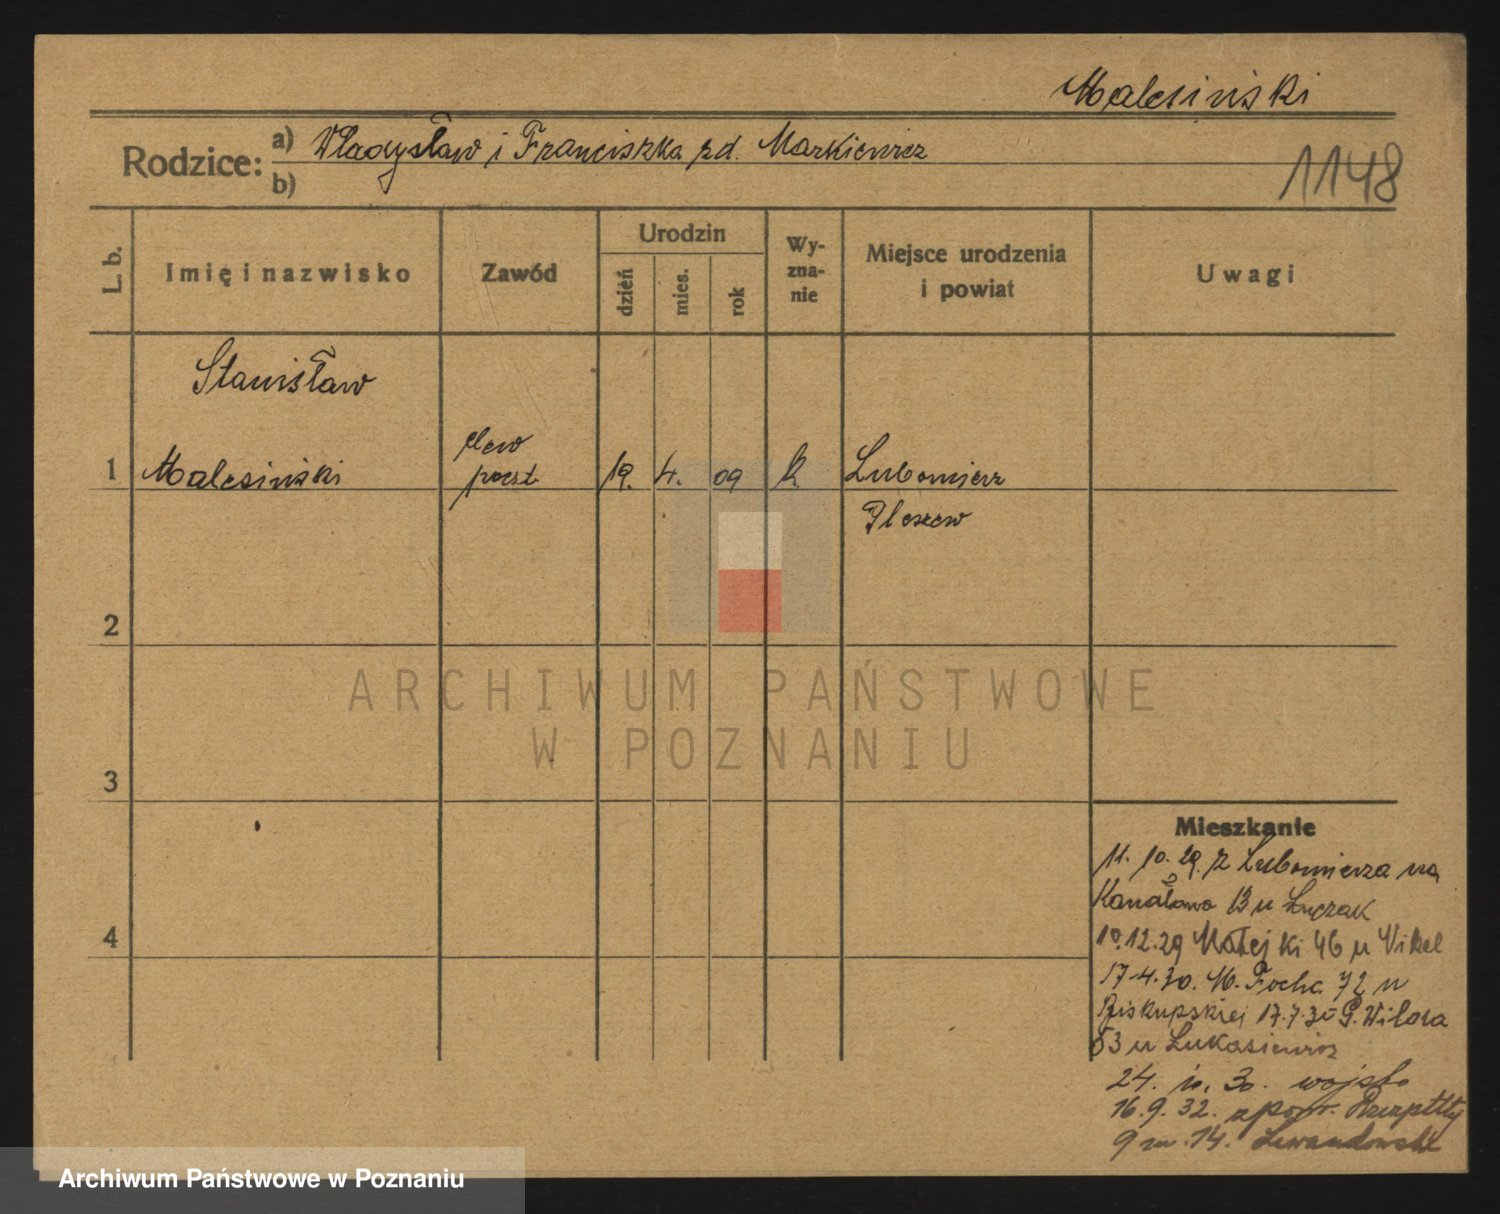 Malesiński
Rodzice: a) Władysław i Franciszka zd. Markiewicz
b)
1148
L. b.
Imię i nazwisko
Zawód
Urodzin
dzień
mies.
rok
Wy-
zna-
nie
Miejsce urodzenia
i powiat
Uwagi
Stanisław
elew
1 Malesiński poczt. 19. 4. 09 k. Lubomierz
Pleszew
2
3
4
ARCHIWUM PAŃSTWOWE
W POZNANIU
Mieszkanie
11. 10. 29. z Lubomierza na
Kanałowa 13 u Łuczak
10.12.29 Matejki 46 u Nikel
17.4.30. M. Focha 72 u
Biskupskiej 17.7.30 G. Wilda
53 u Łukasiewicz
24. 10. 30. wojsko
16. 9. 32. z powr.
9 m. 14. Lewandowski
Archiwum Państwowe w Poznaniu